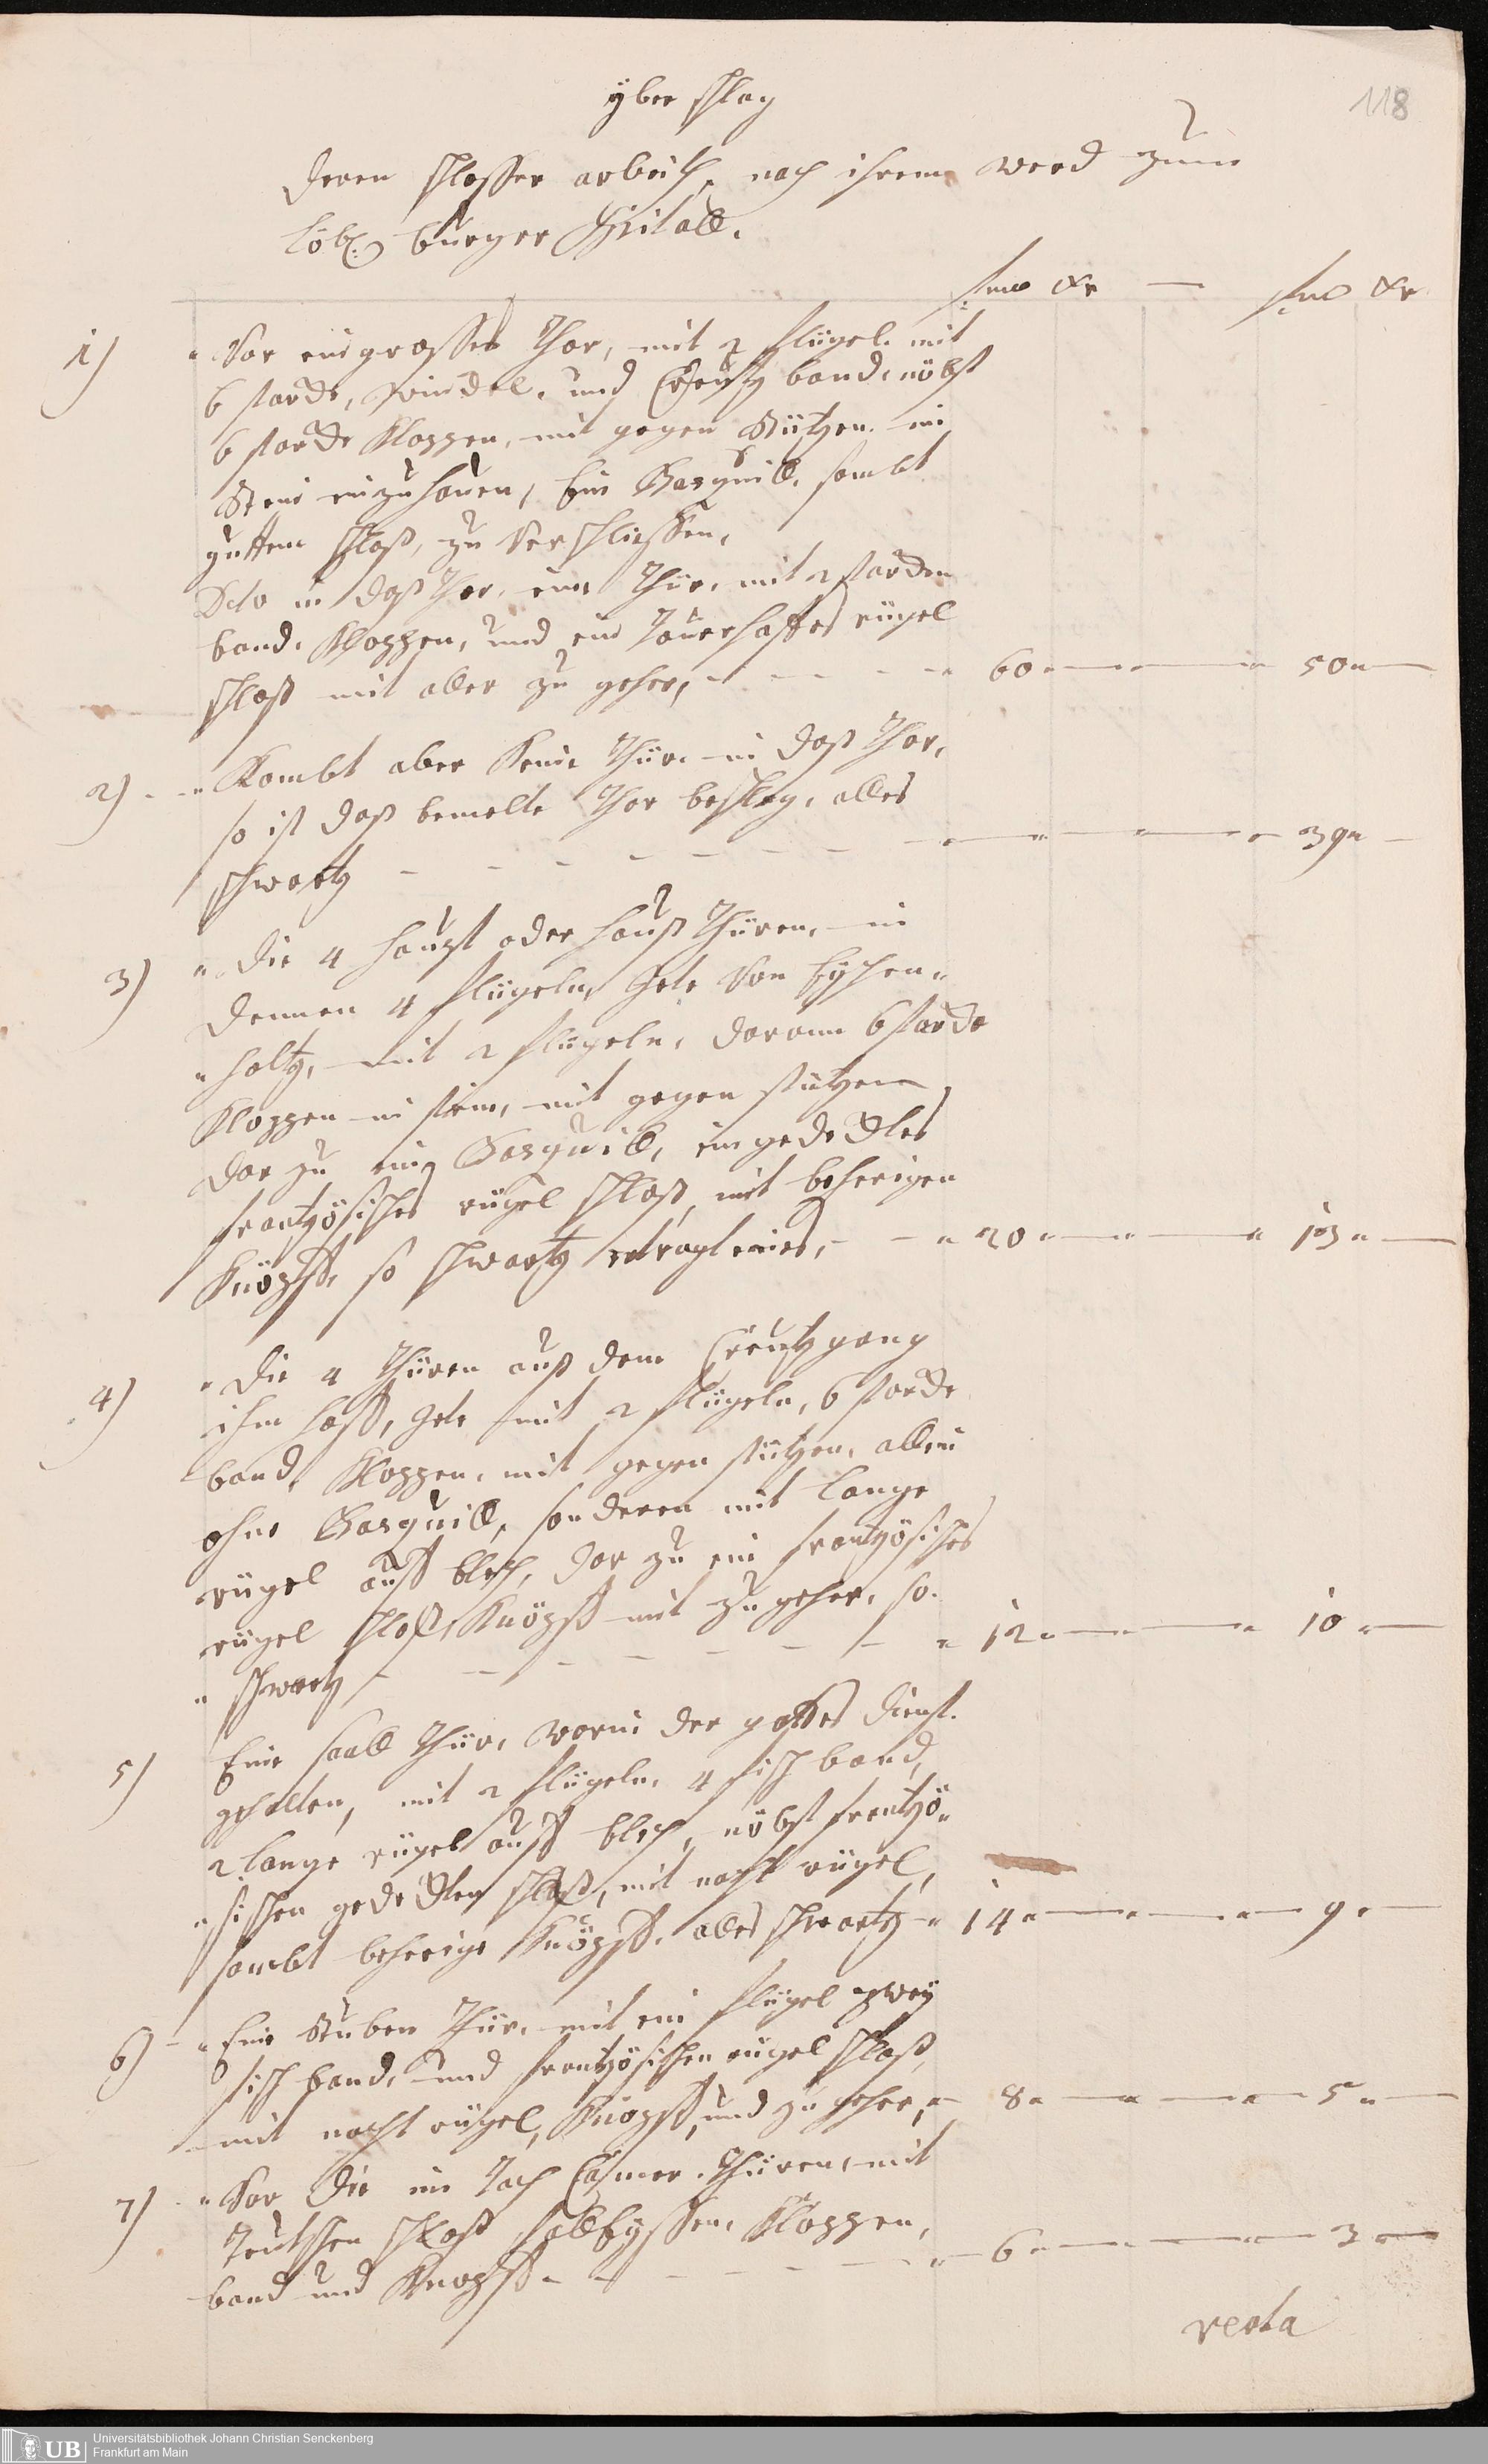 118
ÿber schlag
deren schlosser arbeith, nach ihrem werd zum
Löb: burger Spitall.
fl xr — fl xr
1) Vor ein grosses Thor, mit 2 flügel. mit
6 starcke, windel, und Creütz band, nöbst
6 starcke Kloppen, mit gegen Stützen in
Stein einzuhauen, Ein Basquill, sambt
guttem schloß, zu Verschliessen,
Dito in daß Thor, eine Thür, mit 2 starcken
band, Kloppen, und ein Tauerhafftes rügel
schloß mit aller zu geher, 60 50
2) Kombt aber Keine Thür in daß Thor,
so ist daß bemelte Thor beschleg, alles
schwartz 39
3) Die 4 haupt oder hauß Thüren, in
dennen 4 flügeln, Jete Von Eychen
holtz, mit 2 flügeln, daran 6 starcke
Kloppen in stein, mit gegen stützen
dar zu ein Basquill, ein gedecktes
frantzösisches rügel schloß, mit beherigen
Knöpff, so schwartz betragt eines, 20 13
4) Die 4 Thüren auß dem Creutzgang
ihm hoff, Jete mit 2 flügeln, 6 starcke
band, Kloppen, mit gegen stützen, allein
ohne Basquill, sonderen mit lange
rügel auff blech, dar zu ein frantzösisches
rügel schloß, Knöpff mit zu geher, so
schwartz 12 10
5) Eine saall Thür, worin der gottes dienst
gehalten, mit 2 flügeln, 4 fisch band,
2 lange rügel auff blech, nöbst frantzö
sischen gedeckten schloß, mit nacht rügel,
sambt beherige Knöpff, alles schwartz 14 9
6) Eine Stuben Thür, mit ein flügel zweÿ
fisch band, und frantzösischen rügel schloß,
mit nacht rügel, Knöpff, und zu geher, 8 5
7) Vor die im Tach Camer Thüren, mit
Teutschen schloß, Kloppen,
band und Knopff 6 3
verta
UB
Universitätsbibliothek Johann Christian Senckenberg
Frankfurt am Main